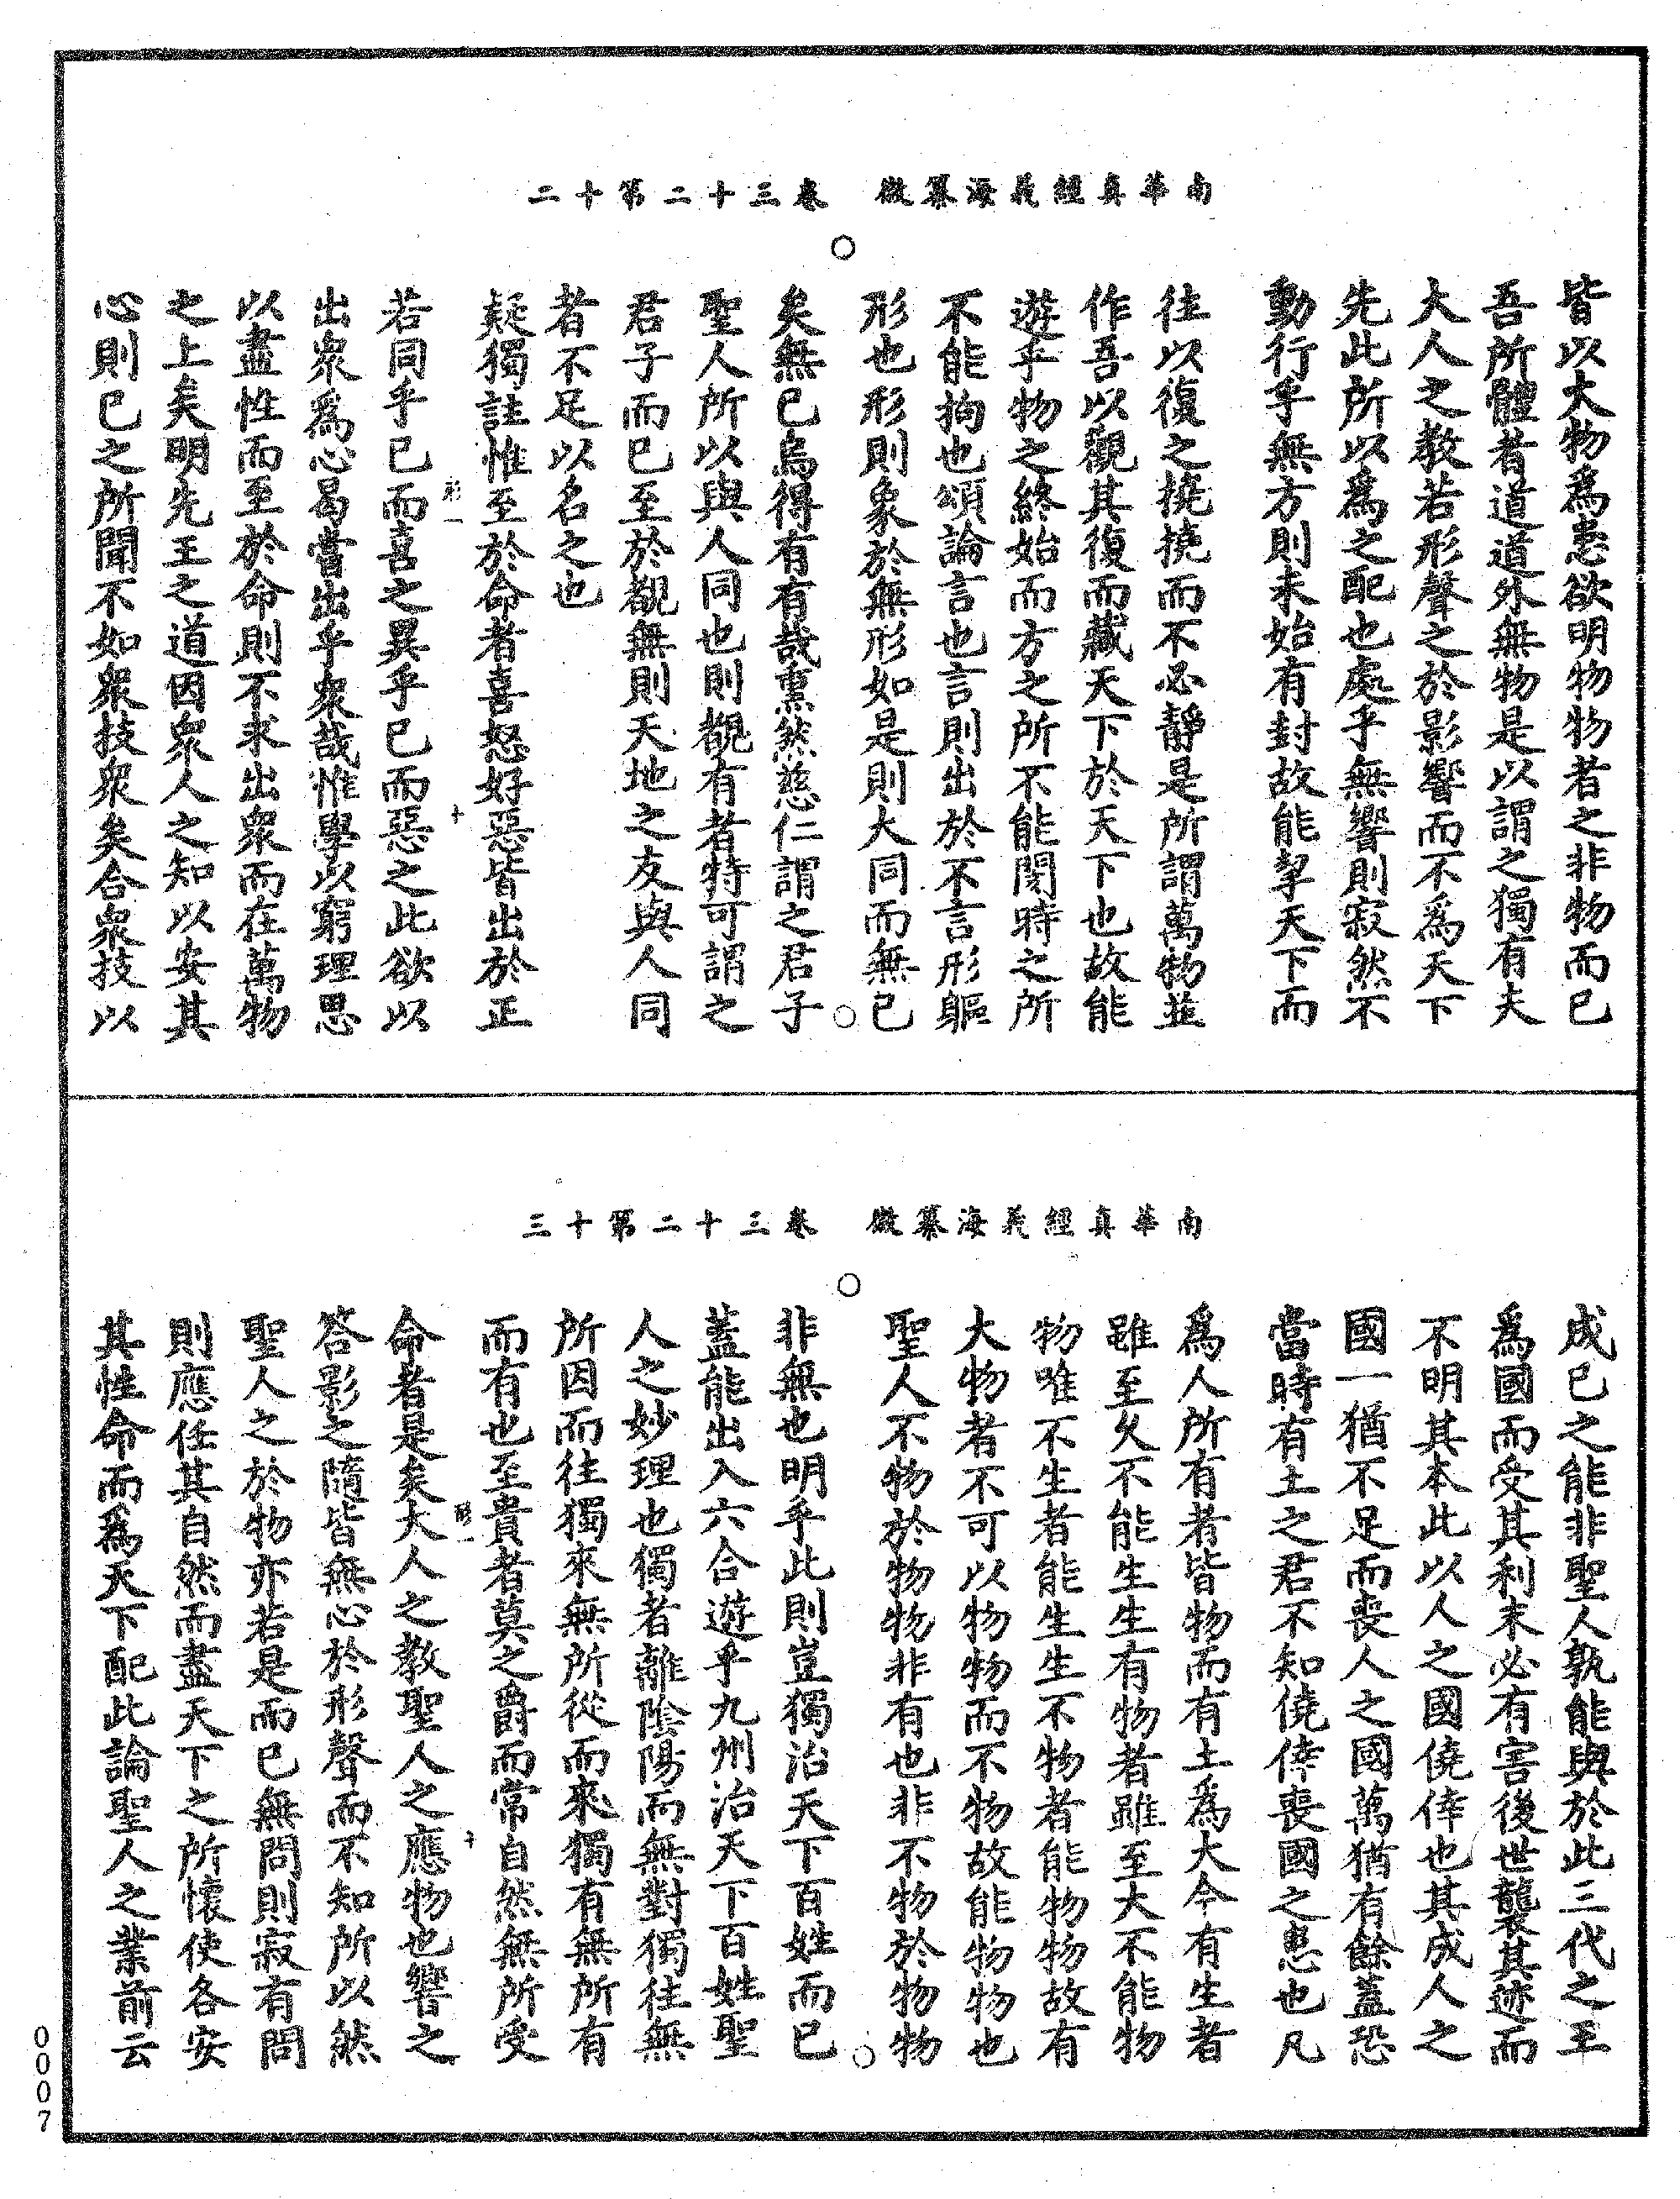 南華真經義海纂微　卷三十二第十二
皆以大物爲患欲明物物者之非物而已
吾所體者道道外無物是以謂之獨有夫
大人之教若形聲之於影響而不爲天下
先此所以爲之配也處乎無響則寂然不
動行乎無方則未始有封故能挈天下而
往以復之撓撓而不必靜是所謂萬物並
作吾以觀其復而藏天下於天下也故能
遊乎物之終始而方之所不能閡時之所
不能拘也頌論言也言則出於不言形軀
形也形則象於無形如是則大同而無已
矣無已烏得有有哉熏然慈仁謂之君子
聖人所以與人同也則覩有者特可謂之
君子而已至於覩無則天地之友與人同
者不足以名之也
疑獨註惟至於命者喜怒好惡皆出於正
若同乎已而喜之異乎已而惡之此欲以
出眾爲心曷嘗出乎眾哉惟學以窮理思
以盡性而至於命則不求出眾而在萬物
之上矣明先王之道因眾人之知以安其
心則已之所聞不如眾技眾矣合眾技以
南華真經義海纂微　卷三十二第十三
成已之能非聖人孰能與於此三代之王
爲國而受其利末必有害後世襲其迹而
不明其本此以人之國僥倖也其成人之
國一猶不足而喪人之國萬猶有餘蓋恐
當時有土之君不知僥倖喪國之患也凡
爲人所有者皆物而有土爲大今有生者
雖至久不能生生有物者雖至大不能物
物唯不生者能生生不物者能物物故有
大物者不可以物物而不物故能物物也
聖人不物於物物非有也非不物於物物
非無也明乎此則豈獨治天下百姓而已
蓋能出入六合遊乎九州治天下百姓聖
人之妙理也獨者離陰陽而無對獨往無
所因而往獨來無所從而來獨有無所有
而有也至貴者莫之爵而常自然無所受
命者是矣大人之教聖人之應物也響之
答影之隨皆無心於形聲而不知所以然
聖人之於物亦若是而已無問則寂有問
則應任其自然而盡天下之所懷使各安
其性命而爲天下配此論聖人之業前云
0007